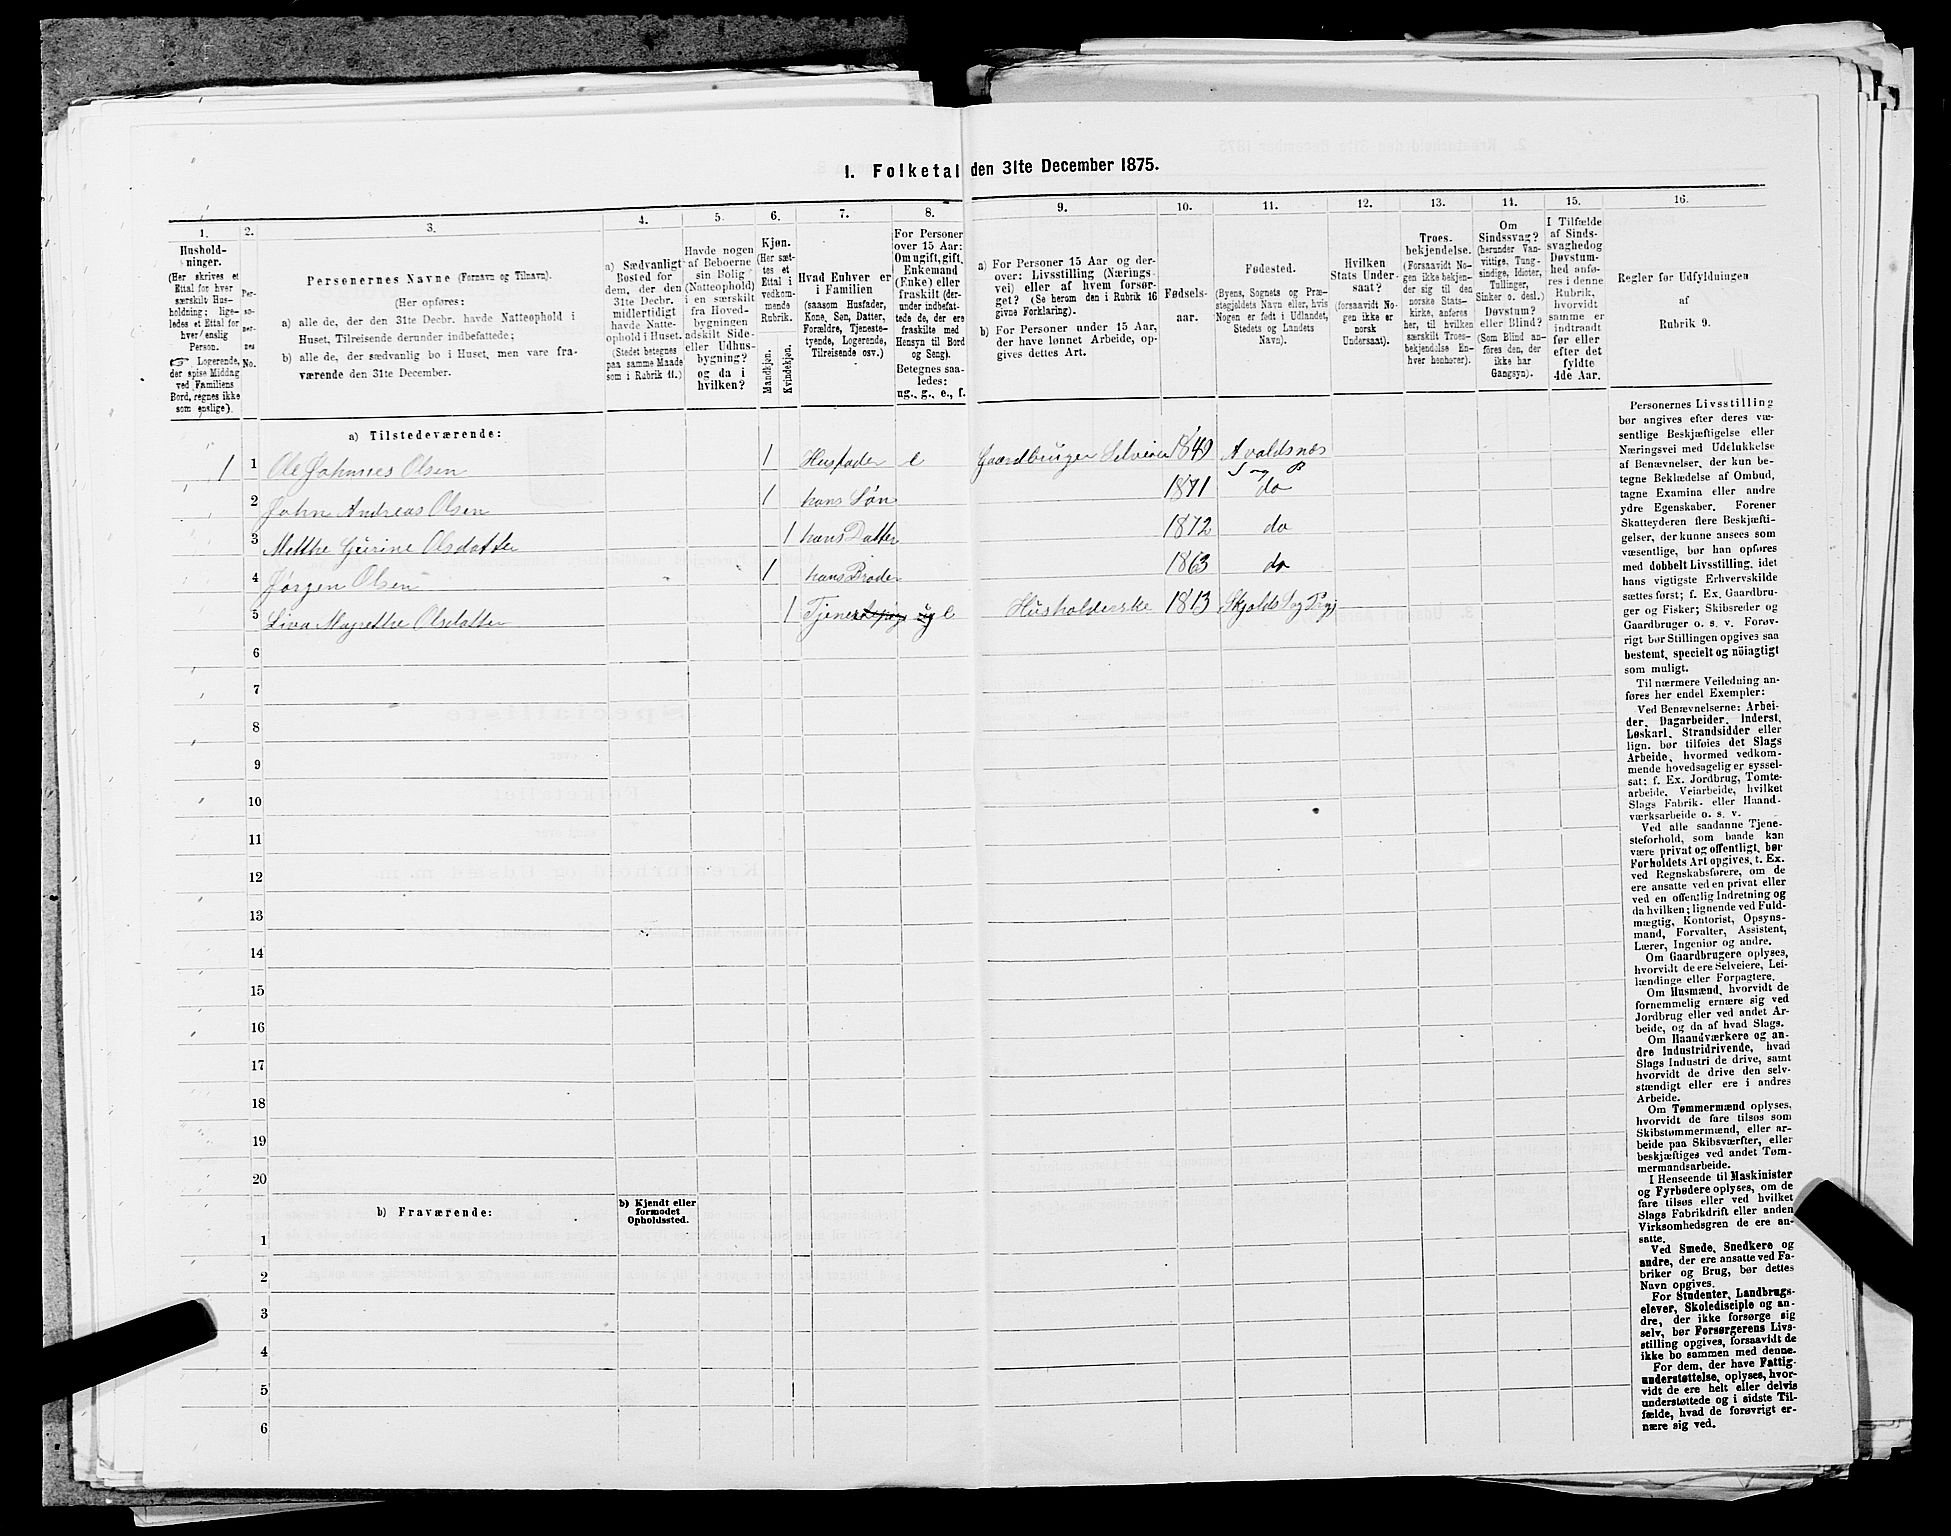 I. Folketal den 31te December 1875.
1. 2. 3. 4. 5. 6. 7. 8. 9. 10. 11. 12. 13. 14. 15. 16.
Hushold-
ninger.
(Her skrives et
Ettal for hver
særskilt Hus-
holdning; lige-
ledes et Ettal for
hver enslig
Person.
☞ Logerende,
der spise Middag
ved Familiens
Bord, regnes ikke
som enslige).
Per-
so-
ner-
nes
No.
Personernes Navne (Fornavn og Tilnavn).
(Her opføres:
a) alle de, der den 31te Decbr. havde Natteophold i
Huset, Tilreisende derunder indbefattede;
b) alle de, der sædvanlig bo i Huset, men vare fra-
værende den 31te December.
a) Sædvanligt
Bosted for
dem, der den
31te Decbr.
midlertidigt
havde Natte-
ophold i Huset.
(Stedet betegnes
paa samme Maade
som i Rubrik 11.)
Havde nogen
af Beboerne
sin Bolig
(Natteophold)
i en særskilt
fra Hoved-
bygningen
adskilt Side-
eller Udhus-
bygning?
og da i
hvilken?
Kjøn.
(Her sæt-
tes et
Ettal i
vedkom-
mende
Rubrik.
Mandkjøn.
Kvindekjøn.
Hvad Enhver er
i Familien
(saasom Husfader,
Kone, Søn, Datter,
Forældre, Tjeneste-
tyende, Logerende,
Tilreisende osv.)
For Personer
over 15 Aar:
Om ugift, gift,
Enkemand
(Enke) eller
fraskilt (der-
under indbefat-
tede de, der ere
fraskilte med
Hensyn til Bord
og Seng).
Betegnes saa-
ledes:
ug., g., e., f.
a) For Personer 15 Aar og der-
over: Livsstilling (Nærings-
vei) eller af hvem forsør-
get? (Se herom den i Rubrik 16
givne Forklaring).
b) For Personer under 15 Aar,
der have lønnet Arbeide, op-
gives dettes Art.
Fødsels-
aar.
Fødested.
(Byens, Sognets og Præ-
stegjeldets Navn eller, hvis
Nogen er født i Udlandet,
Stedets og Landets
Navn).
Hvilken
Stats Under-
saat?
(forsaavidt No-
gen ikke er
norsk
Undersaat).
Troes-
bekjendelse.
(Forsaavidt No-
gen ikke bekjen-
der sig til den
norske Stats-
kirke, anføres
her, til hvilken
særskilt Troes-
bekjendelse En-
hver henhører).
Om
Sindssvag?
(herunder Van-
vittige, Tung-
sindige, Idioter,
Tullinger,
Sinker o. desl.)
Døvstum?
eller Blind?
(Som Blind an-
føres den, der
ikke har
Gangsyn).
I Tilfælde
af Sinds-
svaghed og
Døvstum-
hed anfø-
res i denne
Rubrik,
hvorvidt
samme er
indtraadt
før eller
efter det
fyldte
4de Aar.
Regler for Udfyldningen
af
Rubrik 9.
a) Tilstedeværende:
1 1 Ole Johannes Olsen 1 Husfader e Gaardbruger Selveier 1840 Avaldsnes S og P
2 John Andreas Olsen 1 hans Søn 1871 do
3 Metthe Gurine Olsdatter 1 hans Datter 1872 do
4 Jørgen Olsen 1 hans Broder 1863 do
5 Liva Magrethe Olsdatter 1 e Husholderske 1813 Skjolds S og Pgj
6
7
8
9
10
11
12
13
14
15
16
17
18
19
20
b) Fraværende:
b) Kjendt eller
formodet
Opholdssted.
1
2
3
4
5
6
Personernes Livsstilling
bør angives efter deres væ-
sentlige Beskjæftigelse eller
Næringsvei med Udelukkelse
af Benævnelser, der kun be-
tegne Beklædelse af Ombud,
tagne Examina eller andre
ydre Egenskaber. Forener
Skatteyderen flere Beskjæfti-
gelser, der kunne ansees som
væsentlige, bør han opføres
med dobbelt Livsstilling, idet
hans vigtigste Erhvervskilde
sættes først; f. Ex. Gaardbru-
ger og Fisker; Skibsreder og
Gaardbruger o. s. v. Forøv-
rigt bør Stillingen opgives saa
bestemt, specielt og nöiagtigt
som muligt.
Til nærmere Veiledning an-
føres her endel Exempler:
Ved Benævnelserne: Arbei-
der, Dagarbeider, Inderst,
Løskarl, Strandsidder eller
lign. bør tilføies det Slags
Arbeide, hvormed vedkom-
mende hovedsagelig er syssel-
sat; f. Ex. Jordbrug, Tomte-
arbeide, Veiarbeide, hvilket
Slags Fabrik- eller Haand-
værksarbeide o. s. v.
Ved alle saadanne Tjene-
steforhold, som baade kan
være privat og offentligt, bør
Forholdets Art opgives, t. Ex.
ved Regnskabsførere, om de
ere ansatte ved en privat eller
ved en offentlig Indretning og
da hvilken; lignende ved Fuld-
mægtig, Kontorist, Opsyns-
mand, Forvalter, Assistent,
Lærer, Ingeniør og andre.
Om Gaardbrugere oplyses,
hvorvidt de ere Selveiere, Lei-
lændinge eller Forpagtere.
Om Husmænd, hvorvidt de
fornemmelig ernære sig ved
Jordbrug eller ved andet Ar-
beide, og da af hvad Slags.
Om Haandværkere og an-
dre Industridrivende, hvad
Slags Industri de drive, samt
hvorvidt de drive den selv-
stændigt eller ere i andres
Arbeide.
Om Tømmermænd oplyses,
hvorvidt de fare tilsøs som
Skibstømmermænd, eller ar-
beide paa Skibsværfter, eller
beskjæftiges ved andet Tøm-
mermandsarbeide.
I Henseende til Maskinister
og Fyrbødere oplyses, om de
fare tilsøs eller ved hvilket
Slags Fabrikdrift eller anden
Virksomhedsgren de ere an-
satte.
Ved Smede, Snedkere og
andre, der ere ansatte ved Fa-
briker og Brug, bør dettes
Navn opgives.
For Studenter, Landbrugs-
elever, Skoledisciple og an-
dre, der ikke forsørge sig
selv, bør Forsørgerens Livs-
stilling opgives, forsaavidt de
ikke bo sammen med denne.
For dem, der have Fattig-
understøttelse, oplyses, hvor-
vidt de ere helt eller delvis
understøttede og i sidste Til-
fælde, hvad de forøvrigt er-
nære sig ved.